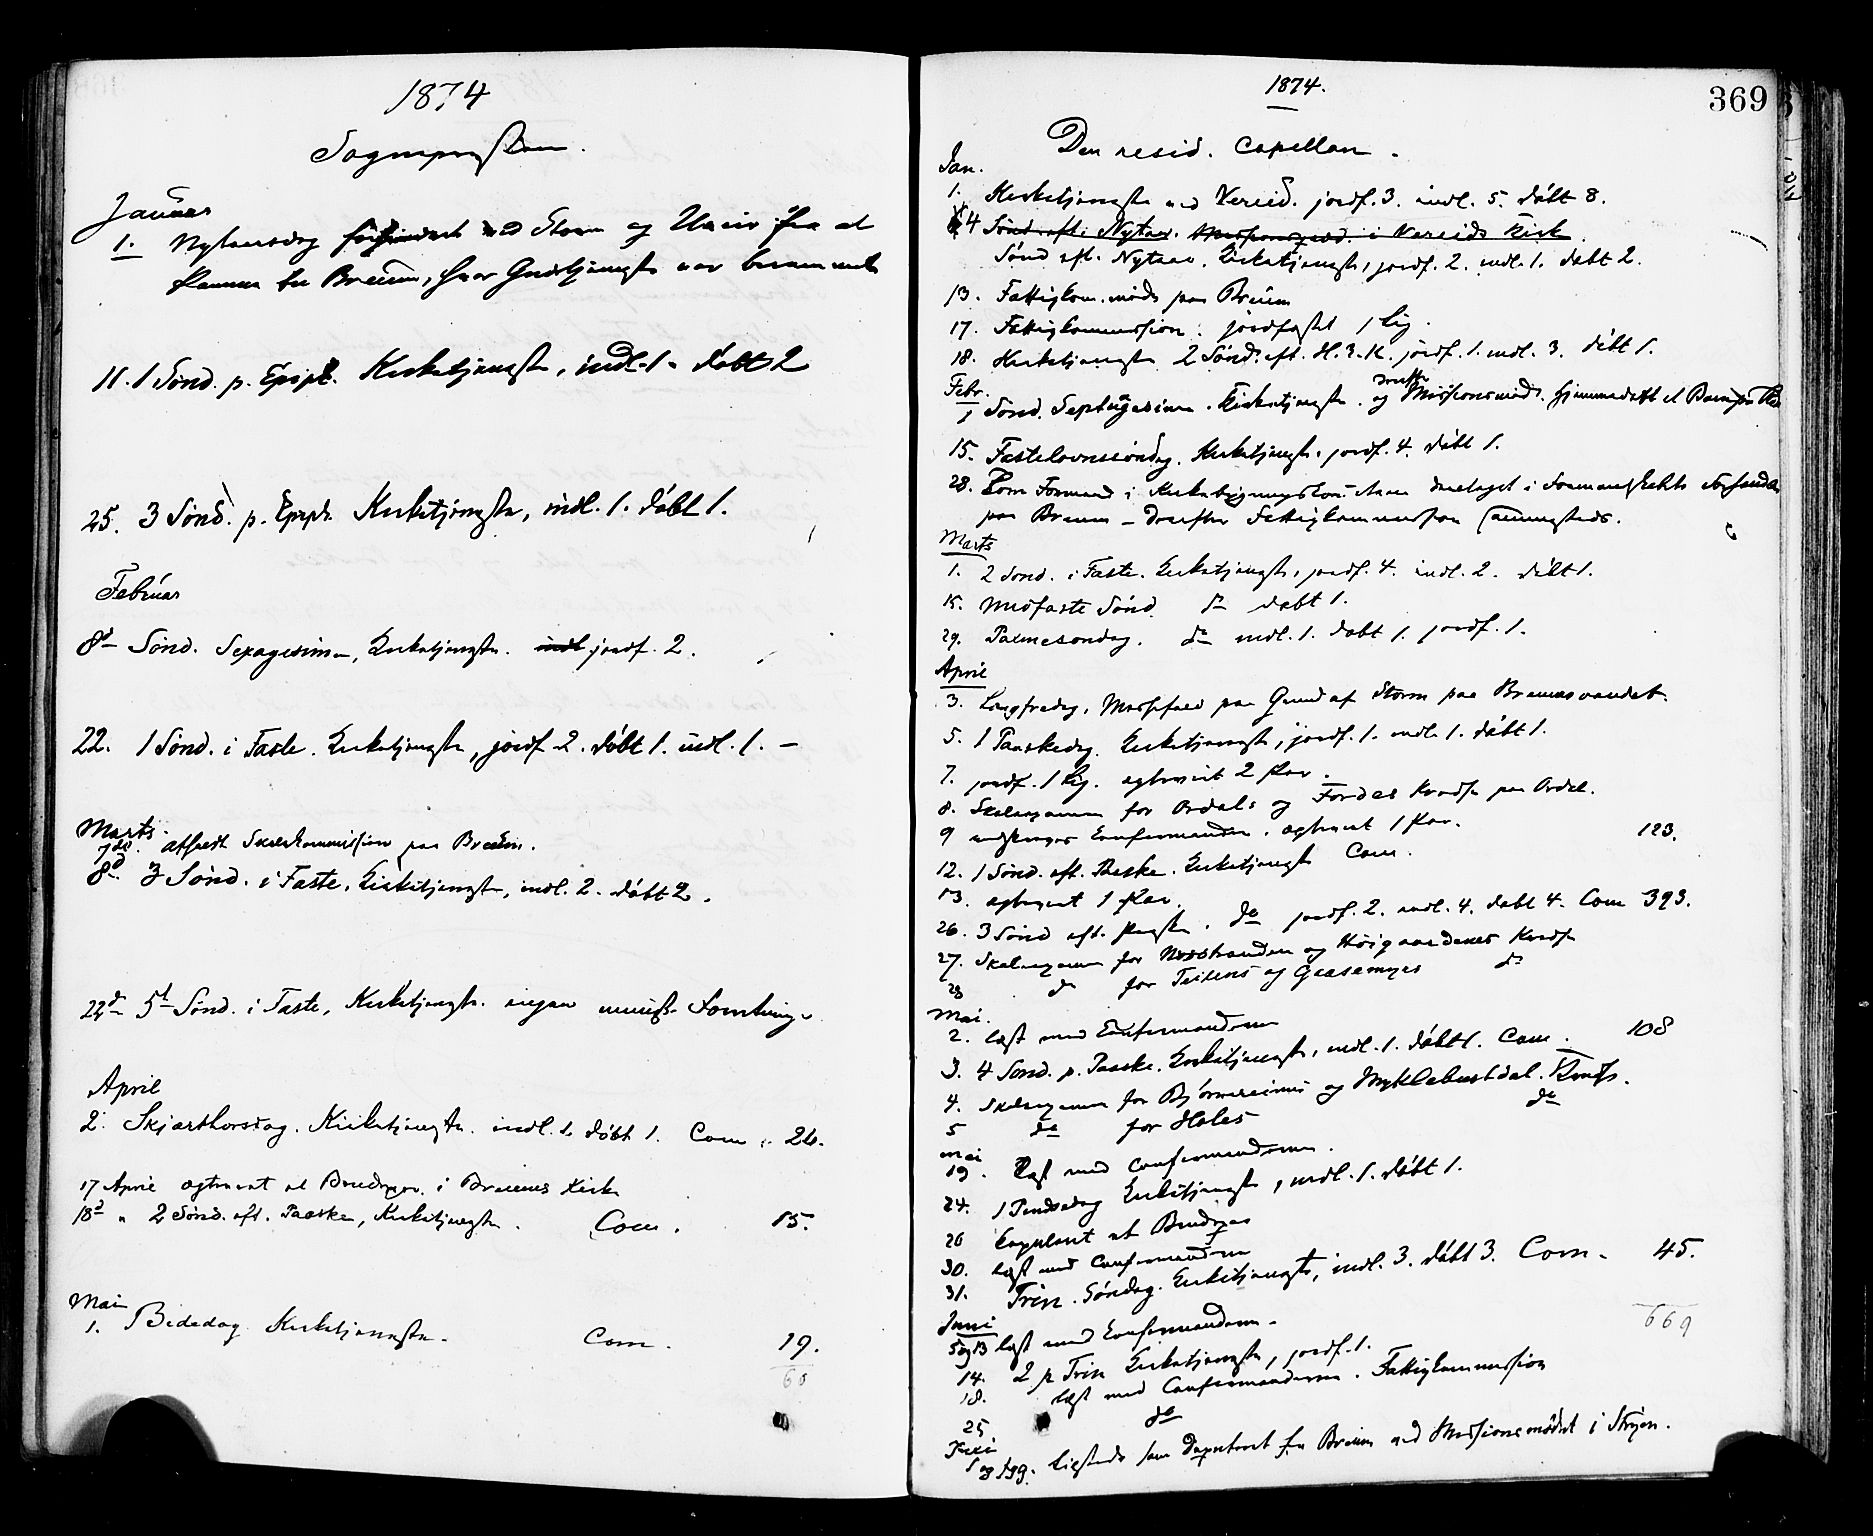 1874
Sognepresten.
Januar
1. Nytaarsdag forhindret ved Storm og Uveir fra at
komme til Breum, hvor Gudstjeneste var berammet
11. 1 Sønd. p. Epiph. Kirketjeneste, indl. 1. døbt 2
25. 3 Sønd. p. Epiph. Kirketjeneste, indl. 1. døbt 1.
Februar
8d Sønd. Sexagesima, Kirketjeneste. indl jordf. 2.
22. 1 Sønd. i Faste. Kirketjeneste, jordf. 2. døbt 1. indl. 1. –
Marts.
7de. afholdt Skolekommission paa Breum.
8d. 3 Sønd. i Faste. Kirketjeneste, indl. 2. døbt 2.
22d 5t Sønd. i Faste, Kirketjeneste. ingen
April
2. Skjærthorsdag. Kirketjeneste. indl. 1. døbt 1. Com. 26.
17 April agtevied et Brudepar i Breums Kirke
18d " 2 Sønd. eft. Paaske, Kirketjeneste. Com. 15.
Mai
1. Bededag Kirketjeneste. Com. 19.
60
1874.
369
Den resid. Capellan.
Jan.
1. Kirketjeneste ved Vereid. jordf. 3. indl. 5. døbt 8.
4 Sønd. eft. Nytaar. i Vereids Kirke
Sønd. eft. Nytaar. Kirketjeneste, jordf. 2. indl. 1. døbt 2.
13. Fattigkom. møde paa Breum
17. Fattigkommission. jordfæstet 1 Lig.
18. Kirketjeneste 2 Sønd. eft. H.3.K. jordf. 1. indl. 3. døbt 1.
Febr.
1 Sønd. Septuagesima. Kirketjeneste. og derefter Missionsmøde. hjemmedøbt et Barn
15. Fastelavnssøndag. Kirketjeneste. jordf. 4. døbt 1.
28. Som Formand i Kirkebygningskom. deeltaget i Formandskabets
paa Breum – derefter Fattigkommission sammesteds.
Marts
1. 2 Sønd. i Faste. Kirketjeneste, jordf. 4. indl. 2. døbt 1.
15. Midfaste Sønd. do døbt 1.
29. Palmesøndag. do indl. 1. døbt 1. jordf. 1.
April
3. Langfredag. Messefald paa Grund af Storm paa Breumsvandet.
5. 1 Paaskedag. Kirketjeneste, jordf. 1. indl. 1. døbt 1.
7. jordf. 1 Lig. agtevied 2 Par.
8. Skoleexamen for Ordals og Fordes Kreds paa Ordal.
9 Confirmander. agtevied 1 Par. 123.
12. 1 Sønd. eft. Paaske. Kirketjeneste Com.
13. agtevied 1 Par.
26. 3 Sønd eft. Paaske. do jordf. 2. indl. 4. døbt 4. Com 393.
27. Skoleexamen for Nordstranden og Høigaardenes Kreds
28 do for Teitens og Gaasemyrs do
Mai.
2. læst med Confirmanderne
3. 4 Sønd. p. Paaske. Kirketjeneste, indl. 1. døbt 1. Com. 108
4. Skoleexamen for Bjørnereims og Myklebustdal. Kreds.
5 do for Holes do
Mai
19. læst med Confirmanderne.
24. 1 Pindsedag Kirketjeneste, indl. 1. døbt 1.
26 Copuleret et Brudepar
30. læst med Confirmanderne
31. Trin. Søndag. Kirketjeneste, indl. 3. døbt 3. Com. 45.
669
Juni
5 og 13 læst med Confirmanderne.
14. 2 p Trin Kirketjeneste, jordf. 1.
18. læst med Confirmanderne. Fattigkommission
25 do
Juli
1 deputeret fra Breum ved Missionsmødet i Stryen.